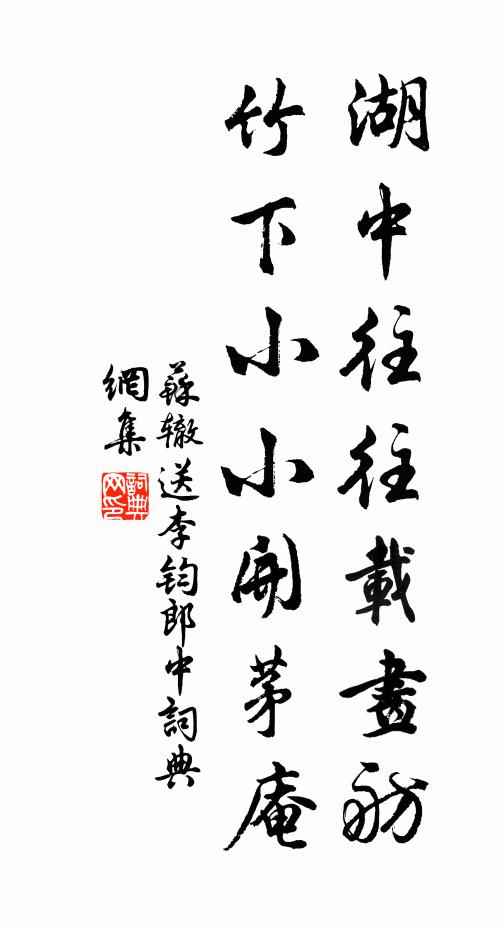 湖中往往載畫舫
竹下小小開茅庵
蘇轍送李鈞郎中詞典
網集
詞典
网印